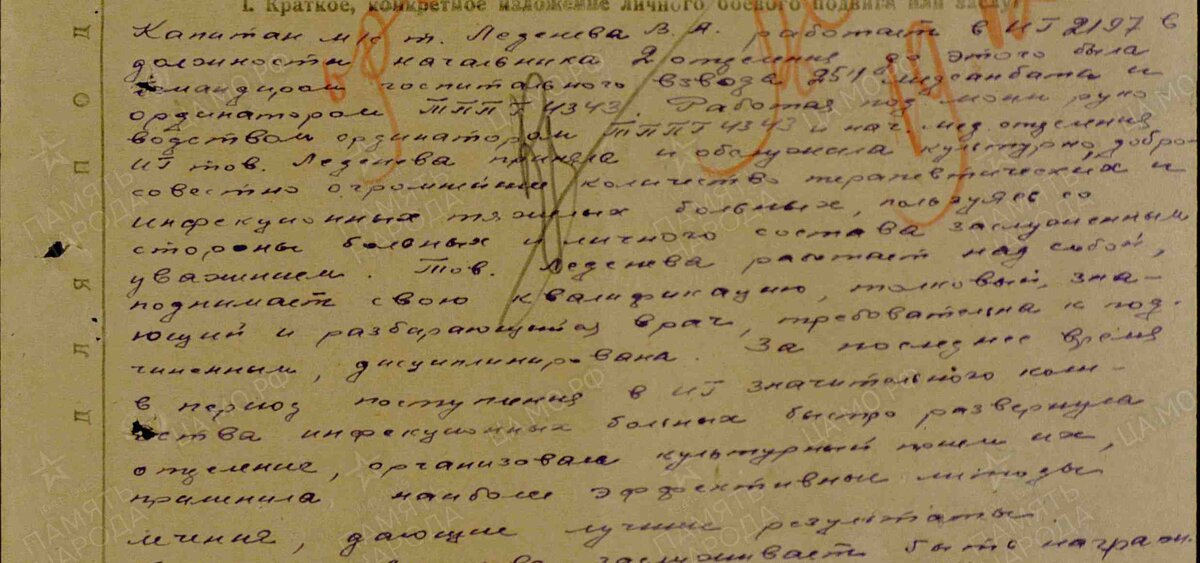 I. Краткое, конкретное изложение личного боевого подвига или заслуг
Капитан м/с т. Леденева В.А. работает в ИГ 2197 в
должности начальника 2 отделения до этого была
командиром госпитального взвода 251 медсанбата и
ординатором ТППГ 4343. Работая под моим руко
водством ординатором ТППГ 4343 и нач. мед. отделения
ИГ тов. Леденева приняла и обслужила культурно, добро
совестно огромнейшее количество терапевтических и
инфекционных тяжелых больных, пользуясь со
стороны больных и личного состава заслуженным
уважением. Тов. Леденева работает над собой,
поднимает свою квалификацию, толковый, зна-
ющий и разбирающийся врач, требовательна к под.
чиненным, дисциплинирована. За последнее время
в период поступления в ИГ значительного коли-
чества инфекционных больных быстро развернула
отделение, организовала культурный прием их,
применила наиболее эффективные методы
лечения, дающие лучшие результаты.
заслуживает быть награжд.
ПОДПОЛ
ДЛЯ
ПАМЯТЬ НАРОДА
ЦАМО.РФ